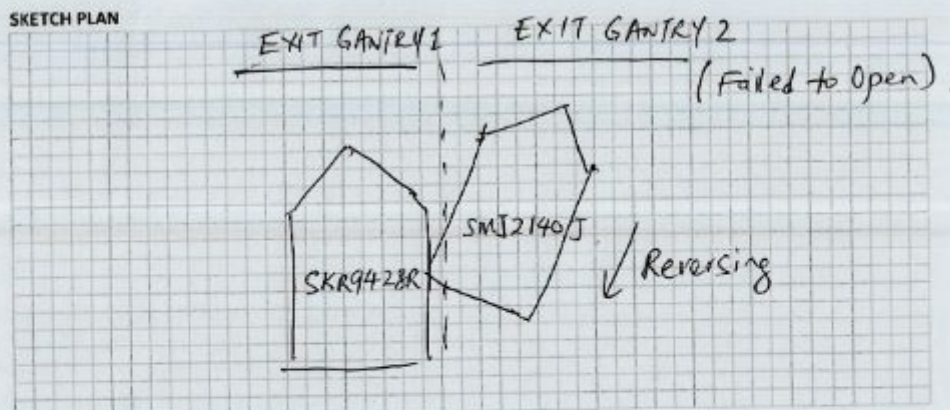 SKETCH PLAN
EXIT GANTRY 1
EXIT GANTRY 2
(Failed to Open)
SMJ2140J
SKR9428R
Reversing